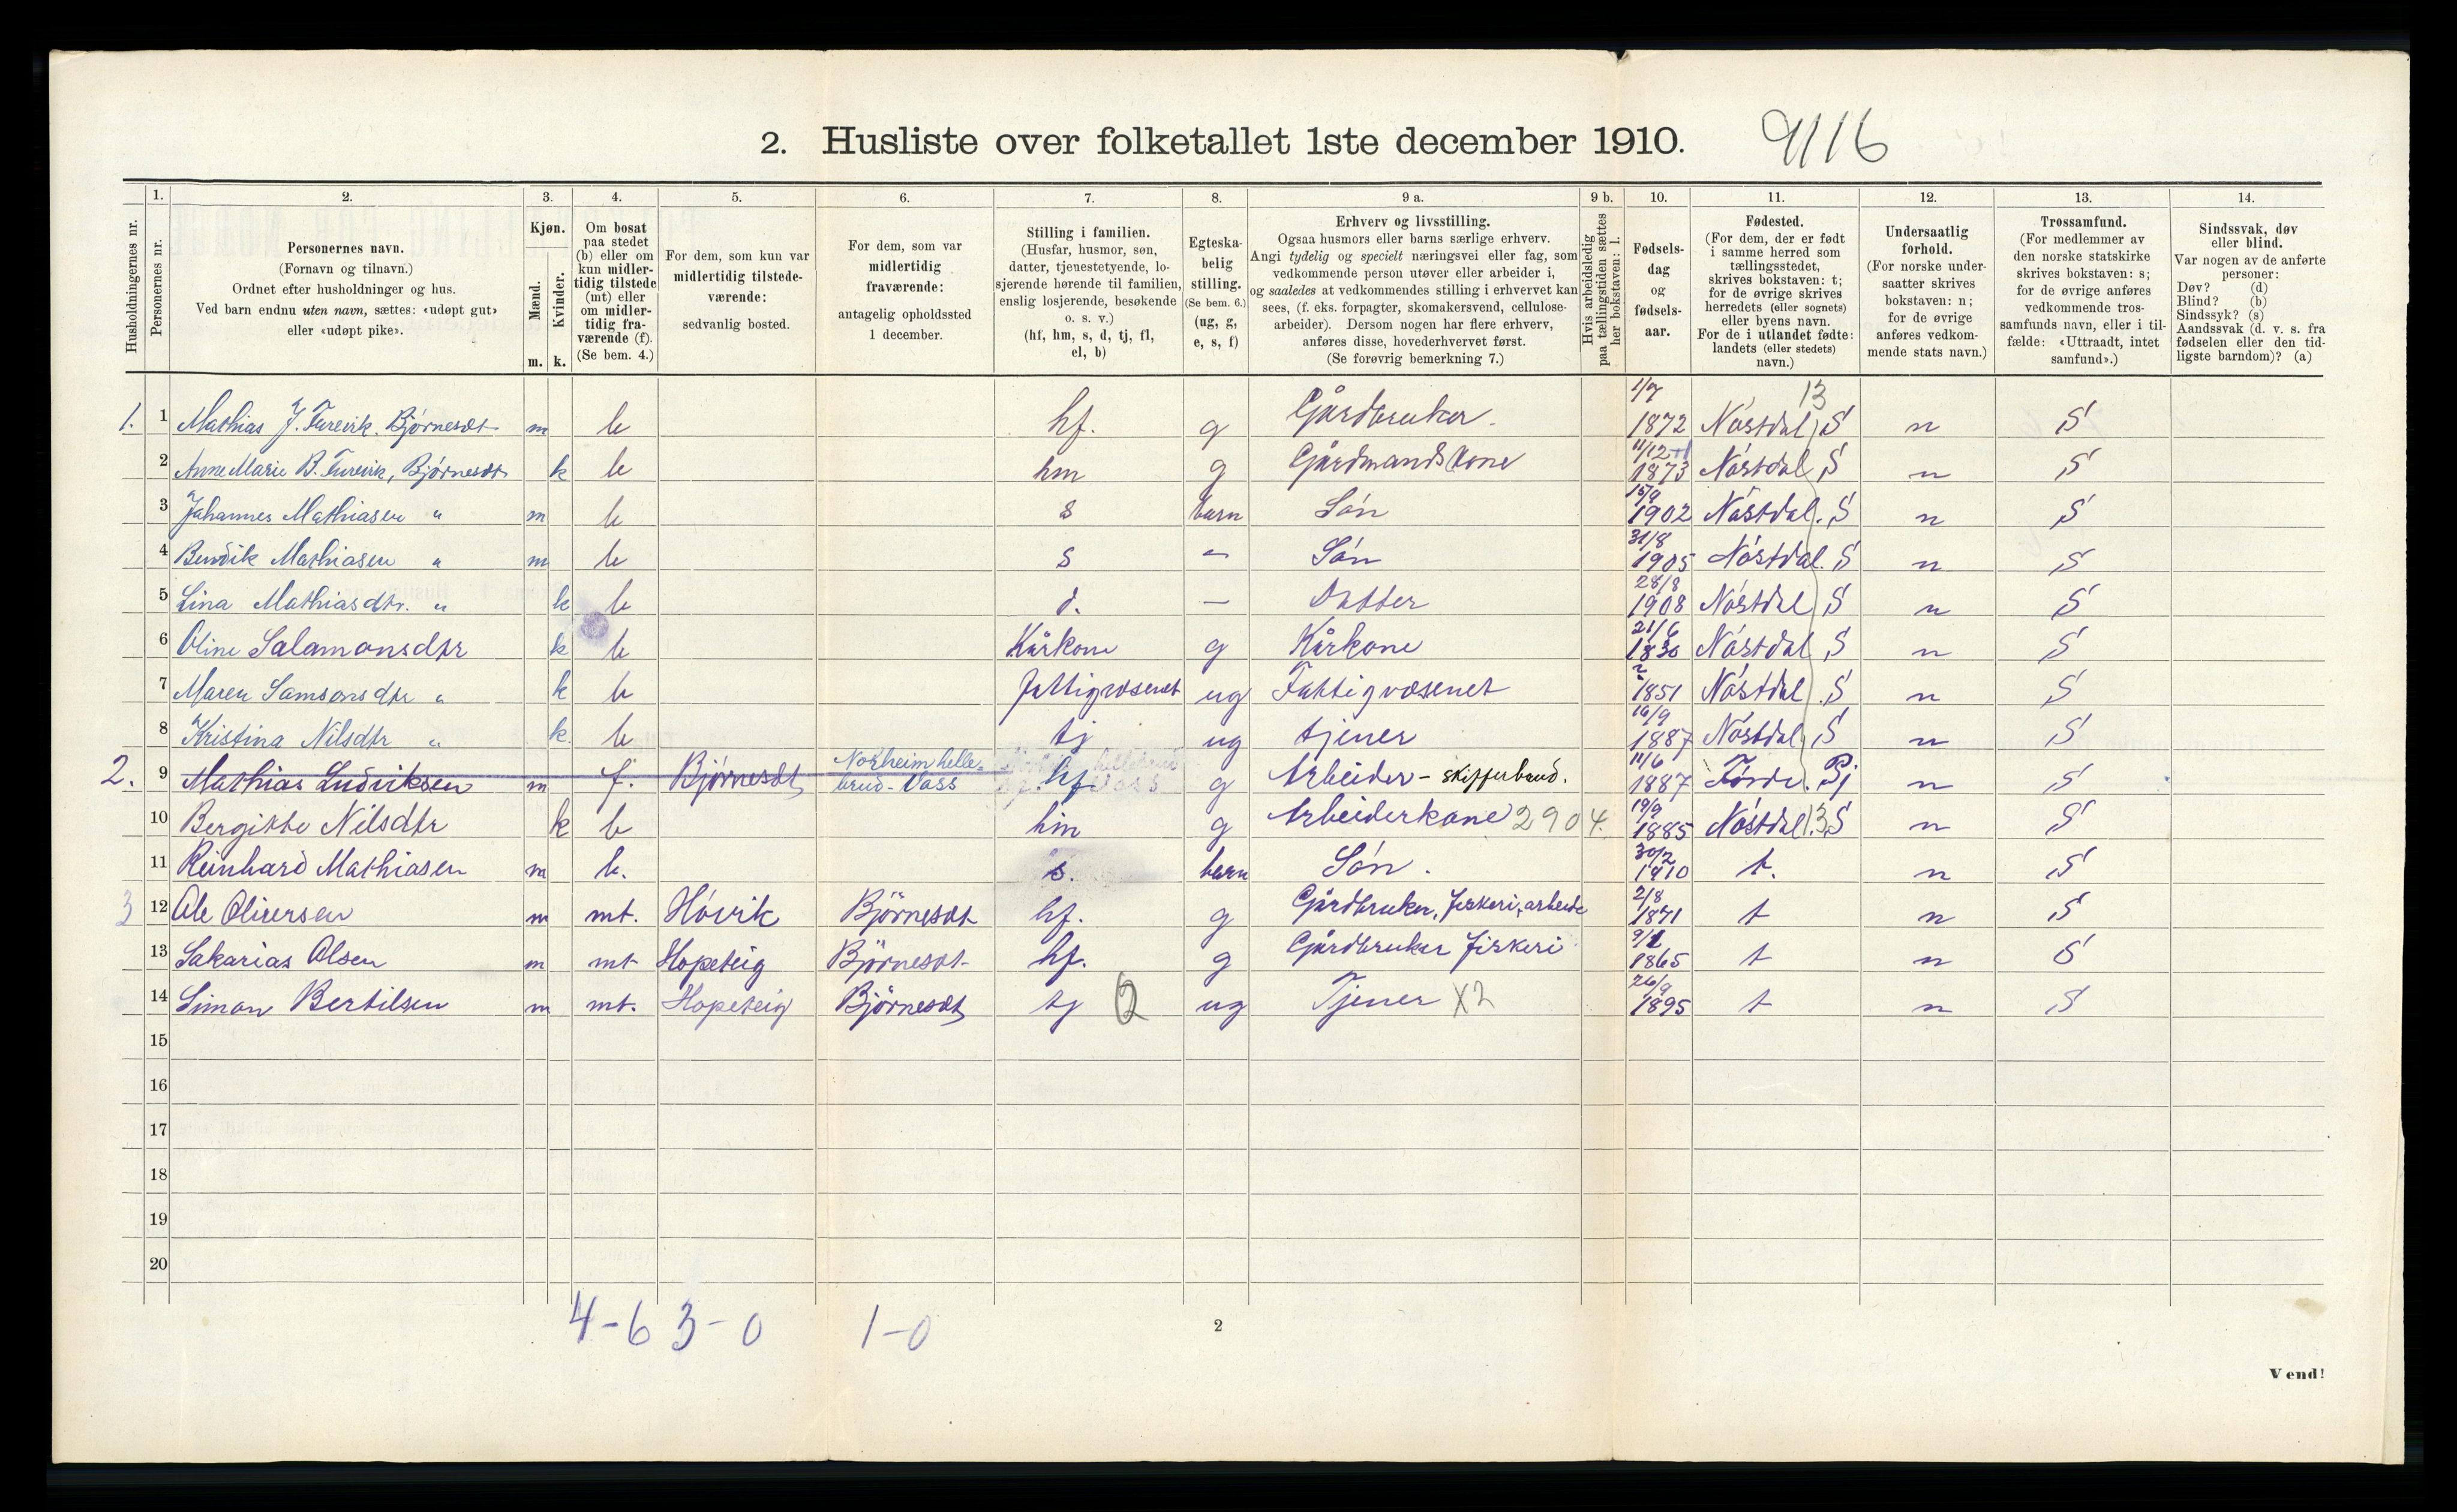 2. Husliste over folketallet 1ste december 1910.
9116
Husholdningernes nr.
1. Personernes nr.
2. Personernes navn.
(Fornavn og tilnavn.)
Ordnet efter husholdninger og hus.
Ved barn endnu uten navn, sættes: «udøpt gut»
eller «udøpt pike».
3. Kjøn.
Mænd. Kvinder.
m. k.
4. Om bosat
paa stedet
(b) eller om
kun midler-
tidig tilstede
(mt) eller
om midler-
tidig fra-
værende (f).
(Se bem. 4.)
5. For dem, som kun var
midlertidig tilstede-
værende:
sedvanlig bosted.
6. For dem, som var
midlertidig
fraværende:
antagelig opholdssted
1 december.
7. Stilling i familien.
(Husfar, husmor, søn,
datter, tjenestetyende, lo-
sjerende hørende til familien,
enslig losjerende, besøkende
o. s. v.)
(hf, hm, s, d, tj, fl,
el, b)
8. Egteska-
belig
stilling.
(Se bem. 6.)
(ug, g,
e, s, f)
9 a. Erhverv og livsstilling.
Ogsaa husmors eller barns særlige erhverv.
Angi tydelig og specielt næringsvei eller fag, som
vedkommende person utøver eller arbeider i,
og saaledes at vedkommendes stilling i erhvervet kan
sees, (f. eks. forpagter, skomakersvend, cellulose-
arbeider). Dersom nogen har flere erhverv,
anføres disse, hovederhvervet først.
(Se forøvrig bemerkning 7.)
9 b. Hvis arbeidsledig
paa tællingstiden sættes
her bokstaven: l.
10. Fødsels-
dag
og
fødsels-
aar.
11. Fødested.
(For dem, der er født
i samme herred som
tællingsstedet,
skrives bokstaven: t;
for de øvrige skrives
herredets (eller sognets)
eller byens navn.
For de i utlandet fødte:
landets (eller stedets)
navn.)
12. Undersaatlig
forhold.
(For norske under-
saatter skrives
bokstaven: n;
for de øvrige
anføres vedkom-
mende stats navn.)
13. Trossamfund.
(For medlemmer av
den norske statskirke
skrives bokstaven: s;
for de øvrige anføres
vedkommende tros-
samfunds navn, eller i til-
fælde: «Uttraadt, intet
samfund».)
14. Sindssvak, døv
eller blind.
Var nogen av de anførte
personer:
Døv? (d)
Blind? (b)
Sindssyk? (s)
Aandssvak (d. v. s. fra
fødselen eller den tid-
ligste barndom)? (a)
1. 1 Mathias J. Furevik. Bjørnesdt m b hf. g Gårdbruker. 1/7 1872 Nøstdal S 13 n S
2 Anne Marie B. Furevik, Bjørnesdt k b hm g Gårdmandskone 11/12 1873 Nøstdal S n S
3 Johannes Mathiasen " m b s barn Søn 15/9 1902 Nøstdal. S n S
4 Bendik Mathiasen " m b s - Søn 31/8 1905 Nøstdal. S n S
5 Lina Mathiasdtr. " k b d. - Datter 28/8 1908 Nøstdal S n S
6 Oline Salamonsdtr k b Kårkone g Kårkone 21/6 1830 Nøstdal S n S
7 Maren Samsonsdtr " k b Fattigvæsenet ug Fattigvæsenet 1851 Nøstdal. S n S
8 Kristina Nilsdtr " k b tj ug tjener 16/9 1887 Nøstdal S n S
2. 9 Mathias Ludviksen m f. Bjørnesdt Norheim helle- brud - Vass hf g Arbeider - skifferbrud. 11/6 1887 Førde. Pj n S
10 Bergitte Nilsdtr k b hm g Arbeiderkone 290 4. 19/9 1885 Nøstdal 13 S n S
11 Reinhard Mathiasen m b. s. barn Søn. 30/2 1910 t. n S
3 12 Ole Oliversen m mt. Høvik Bjørnesdt hf. g Gårdbruker, fiskeri, arbeide 2/8 1871 t n S
13 Sakarias Olsen m mt Hopeteig Bjørnesdt hf. g Gårdbruker fiskeri 1865 t n S
14 Simon Bertilsen m mt. Hopeteig Bjørnesdt tj 2 ug Tjener X2 26/9 1895 t n S
15
16
17
18
19
20
4-6 3-0 1-0
2
Vend!